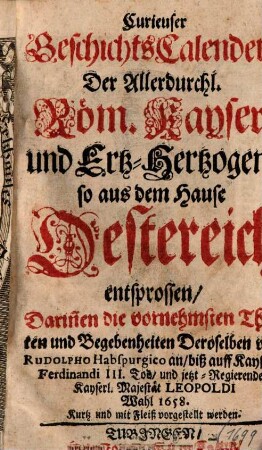 Curieuser
GeschichtsCalender
Der Allerdurchl.
Röm. Kayser
und Ertz-Hertzogen
so aus dem Hause
Oestereich
entsprossen/
Dariñen die vornehmsten Th
ten und Begebenheiten Deroselben v
RUDOLPHO Habspurgico an/biß auff Kays
Ferdinandi III. Tod/ und jetzt-Regierende
Kayserl. Majestät LEOPOLDI
Wahl 1658.
Kurtz und mit Fleiß vorgestellt werden.
TUBINGEN/